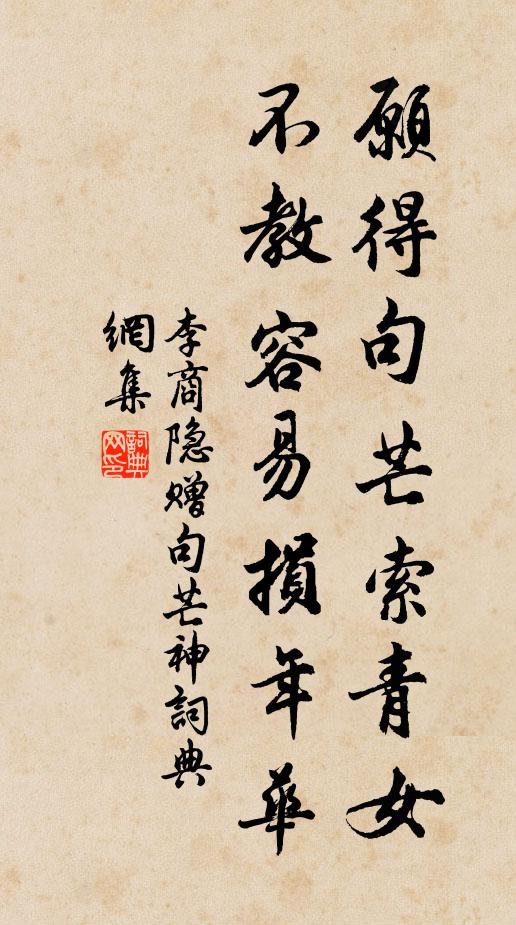 願得句芒索青女
不教容易損年華
李商隐赠句芒神詞典
網集
詞典
网印